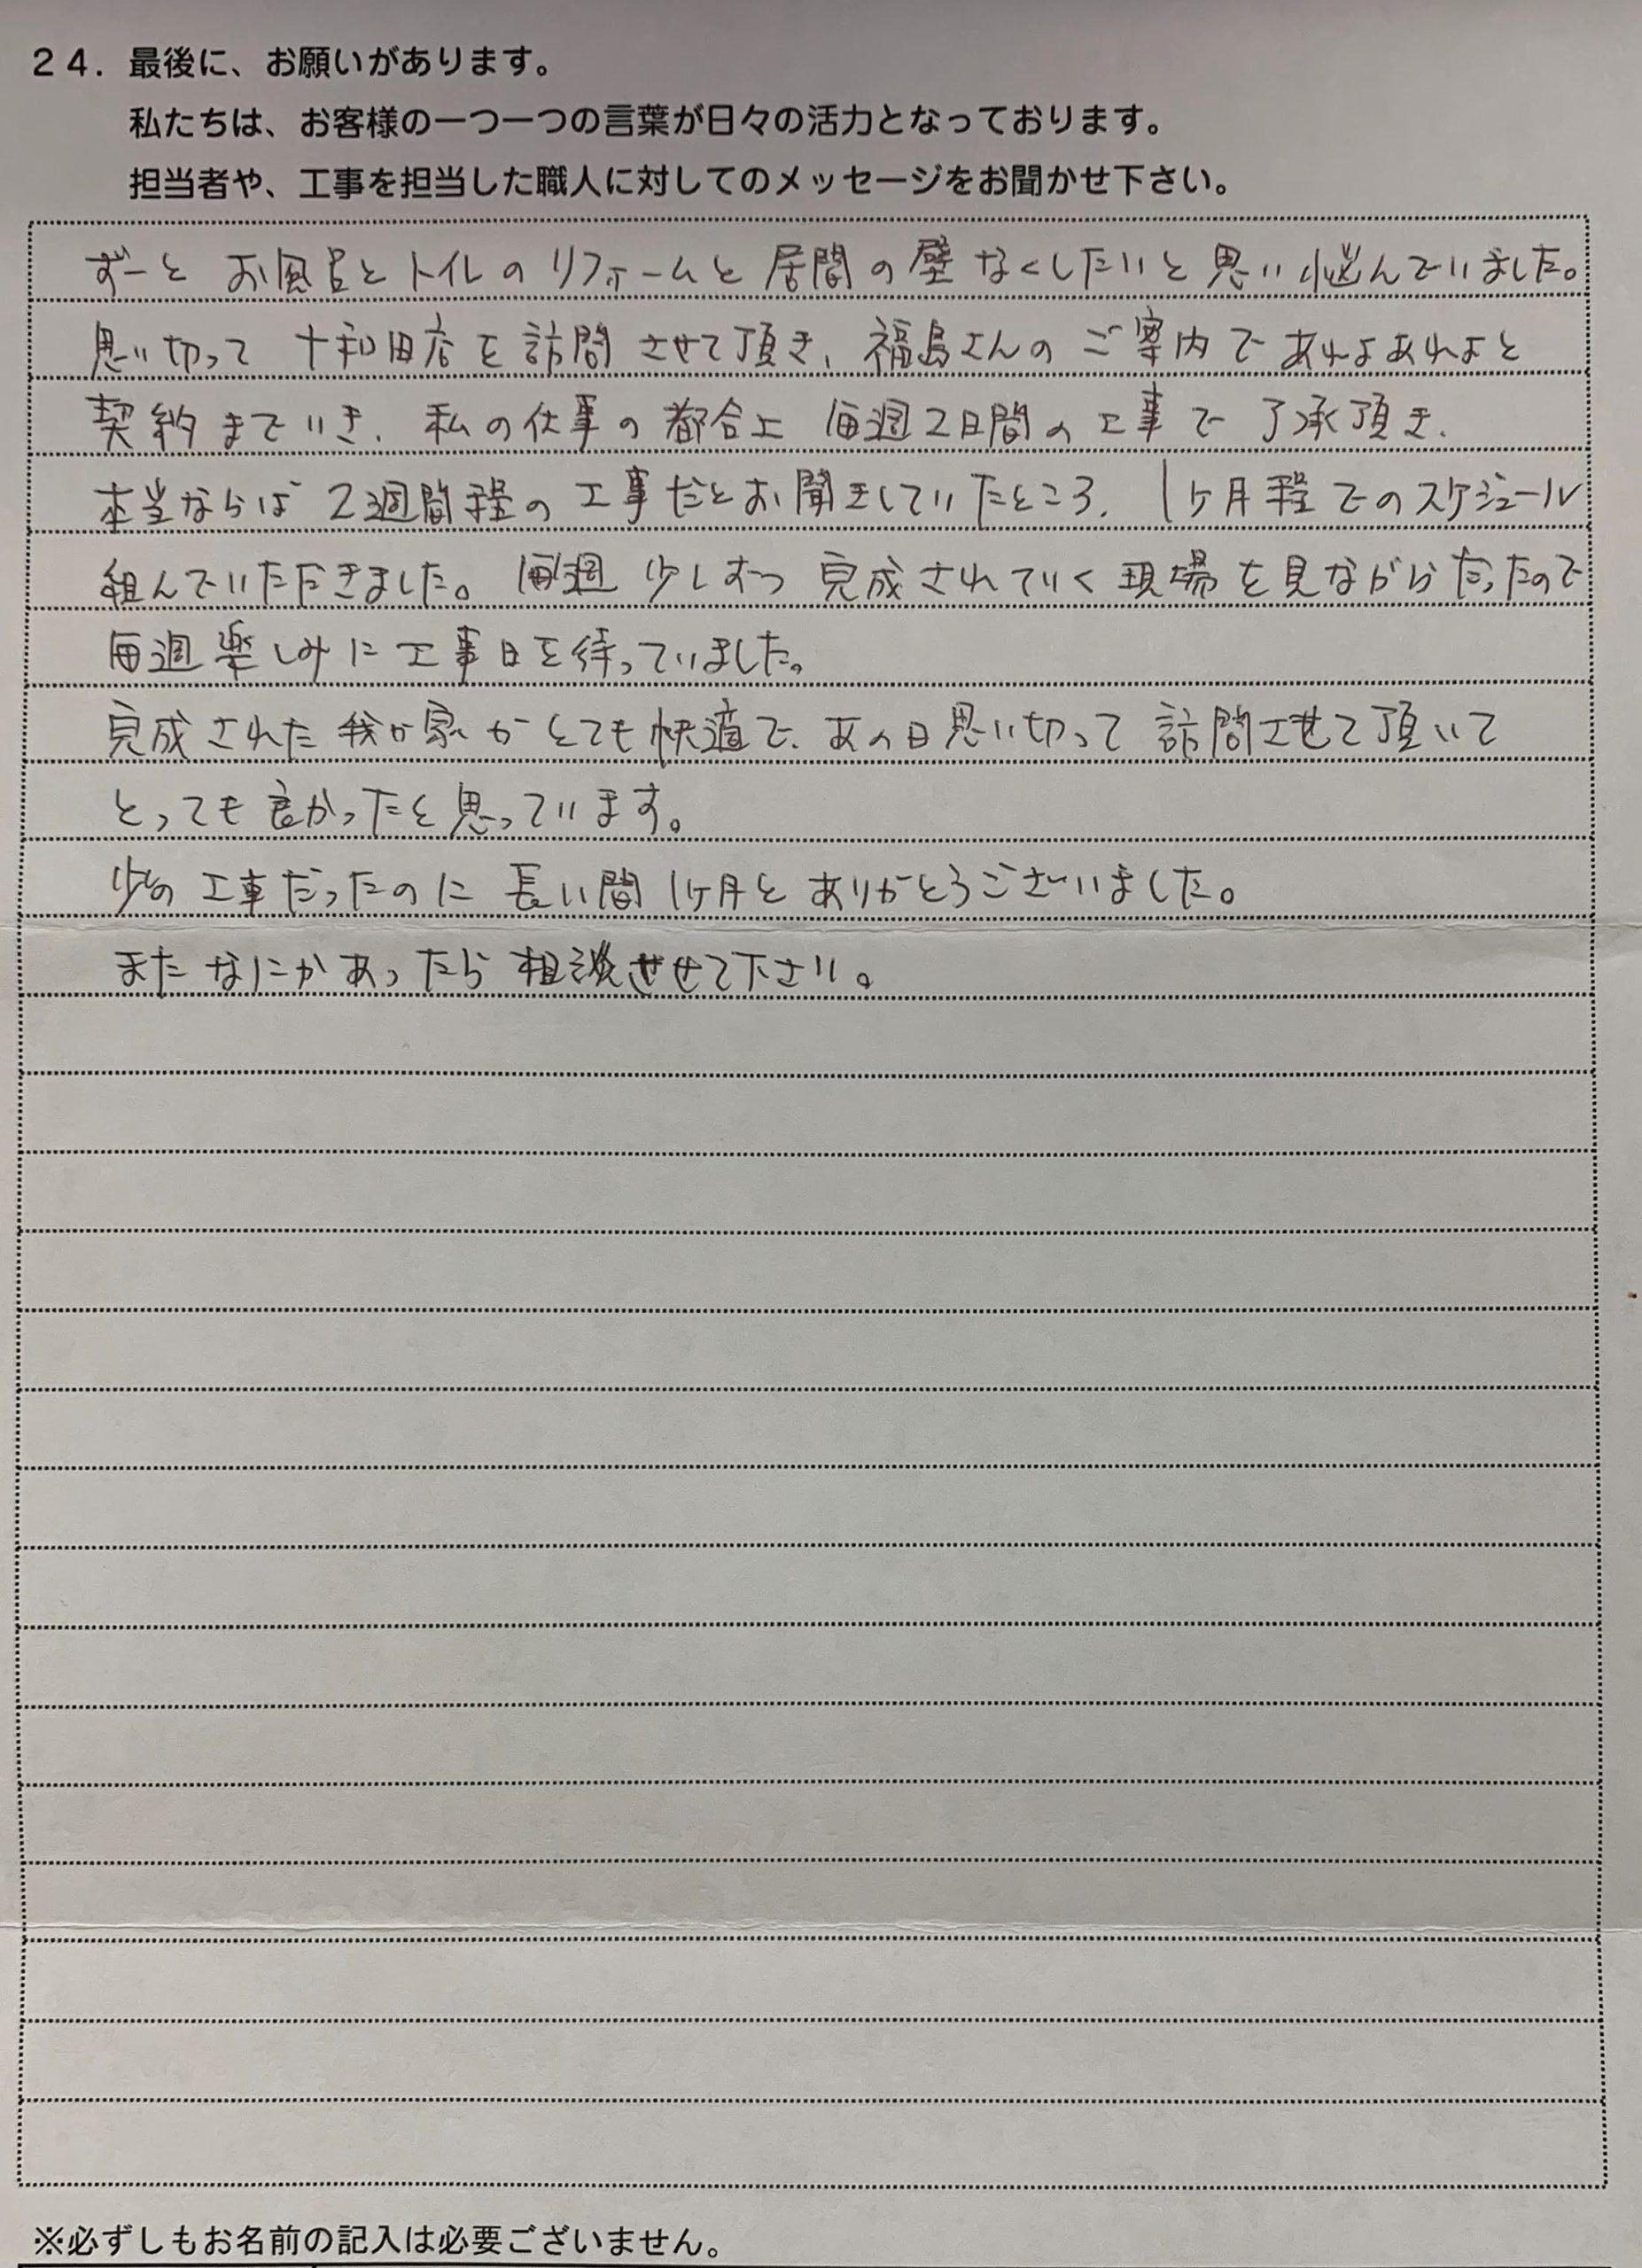 24．最後に、お願いがあります。
私たちは、お客様の一つ一つの言葉が日々の活力となっております。
担当者や、工事を担当した職人に対してのメッセージをお聞かせ下さい。
ずーと お風呂とトイレのリフォームと居間の壁なくしたいと思い悩んでいました。
思い切って 十和田店を訪問させて頂き、福島さんのご案内であれよあれよと
契約まていき、私の仕事の都合上 毎週2日間の工事で了承頂き、
本当ならば 2週間程の工事だとお聞きしていたところ、1ヶ月程でのスケジュール
組んでいただきました。毎週 少しずつ 完成されていく現場を見ながらだったので
毎週楽しみに工事日を待っていました。
完成された我が家がとても快適で、あの日思い切って訪問させて頂いて
とっても良かったと思っています。
少の工事だったのに 長い間1ヶ月と ありがとうございました。
またなにかあったら相談させて下さい。
※必ずしもお名前の記入は必要ございません。